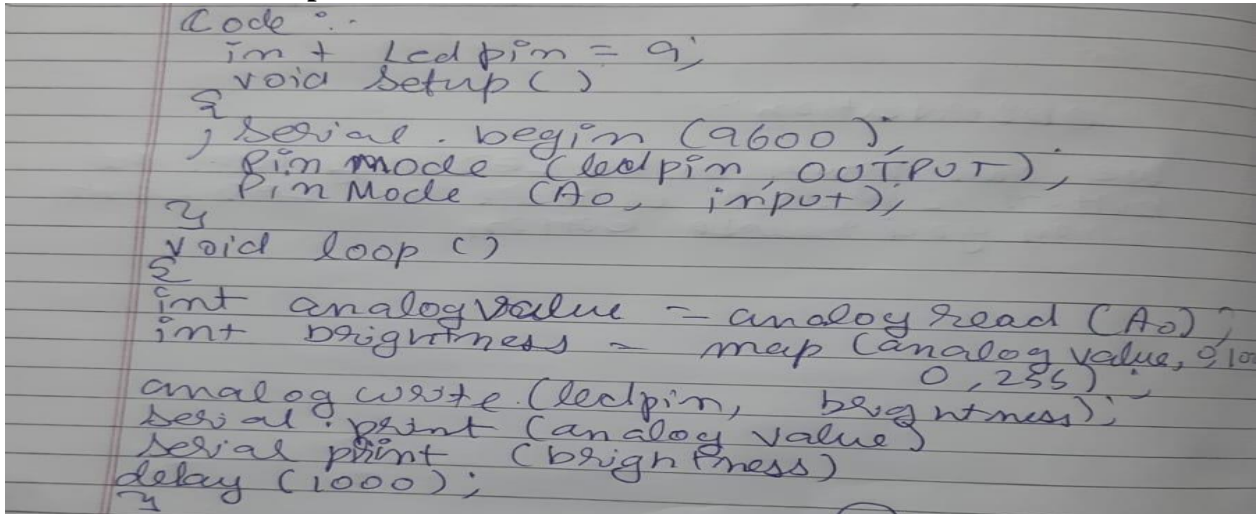 Code :-
int Led pin = 9;
void setup ( )
{
; serial . begin (9600);
Pin mode (ledpin, OUTPUT);
Pin Mode (A0, input);
}
void loop ( )
{
int analog value = analog read (A0);
int brightness = map (analog value, 0,10
0,255);
analog write (ledpin, brightness);
serial . print (analog value)
serial print (brightness)
delay (1000);
}